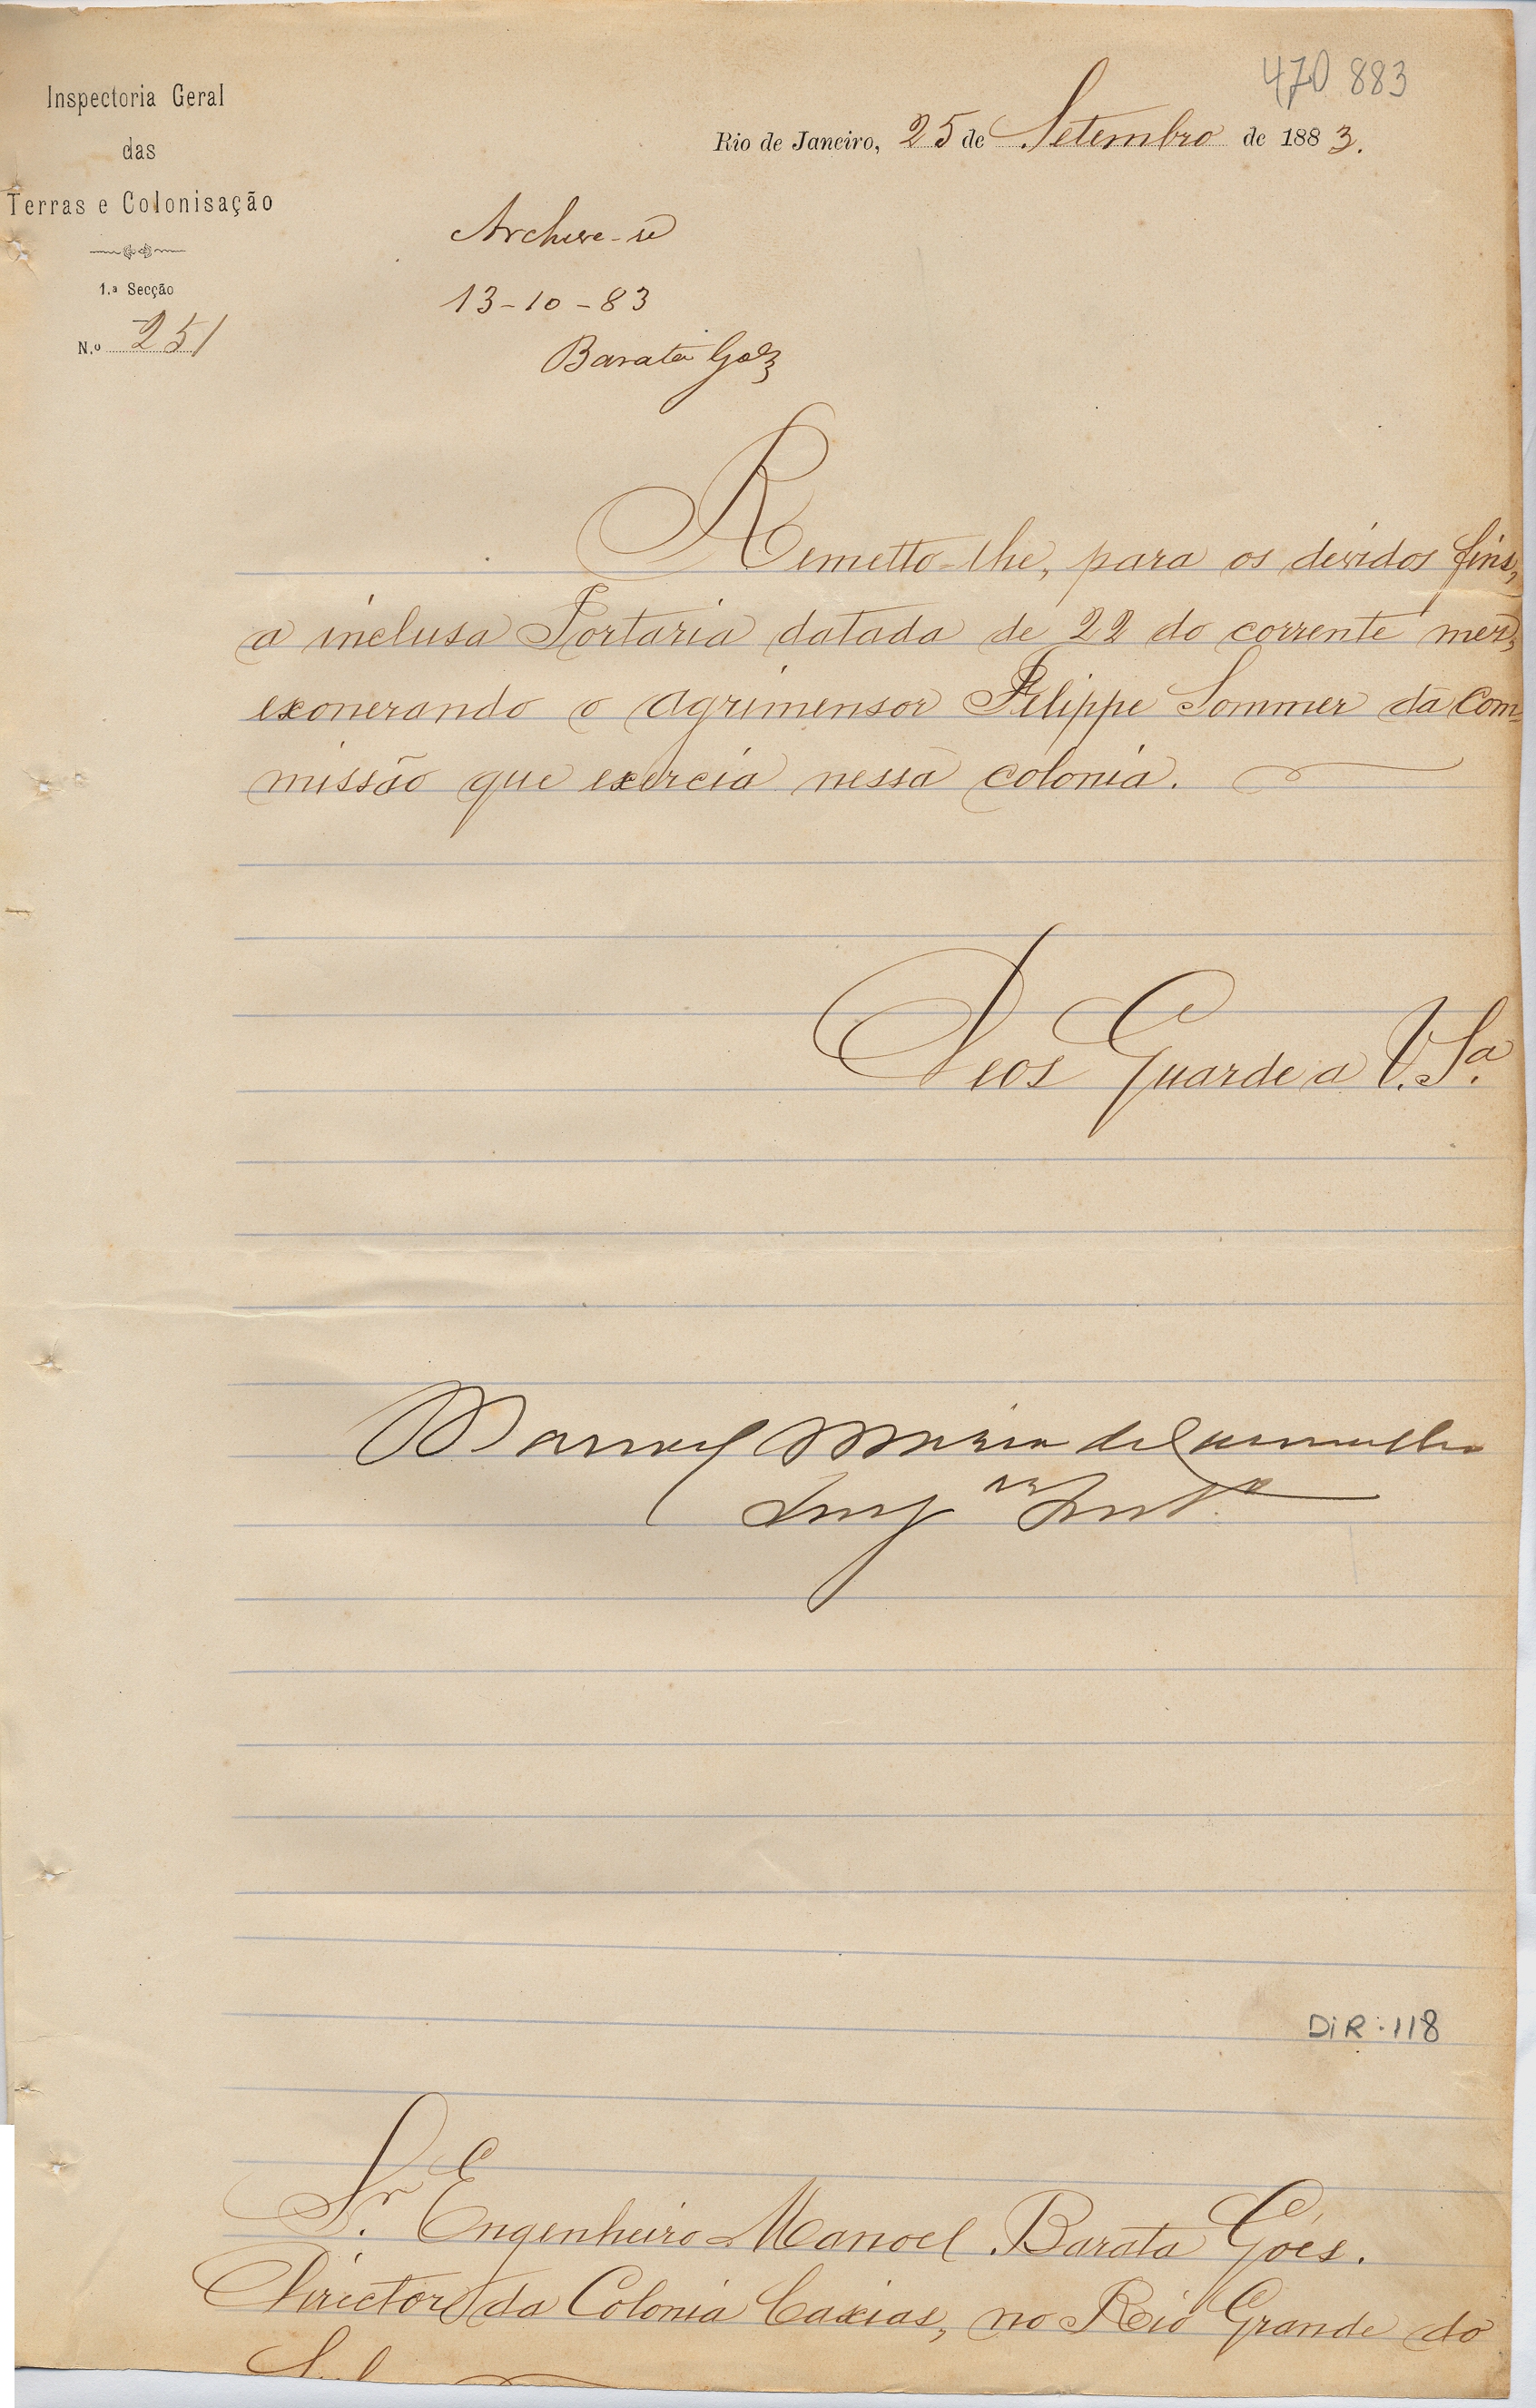 470 883
Inspectoria Geral
das
Terras e Colonisação
1.ª Secção
N.º 251
Rio de Janeiro, 25 de Setembro de 1883.
Archive-se
13-10-83
Barata Góes
Remetto-lhe, para os devidos fins,
a inclusa Portaria datada de 22 do corrente mez,
exonerando o agrimensor Felippe Sommer da com-
missão que exercia nessa colonia.
Deos Guarde a V. Sª.
Manoel Maria de Carvalho
Insp Int.º
DIR:118
Sr. Engenheiro Manoel Barata Góes.
Director da Colonia Caxias, no Rio Grande do
Sul